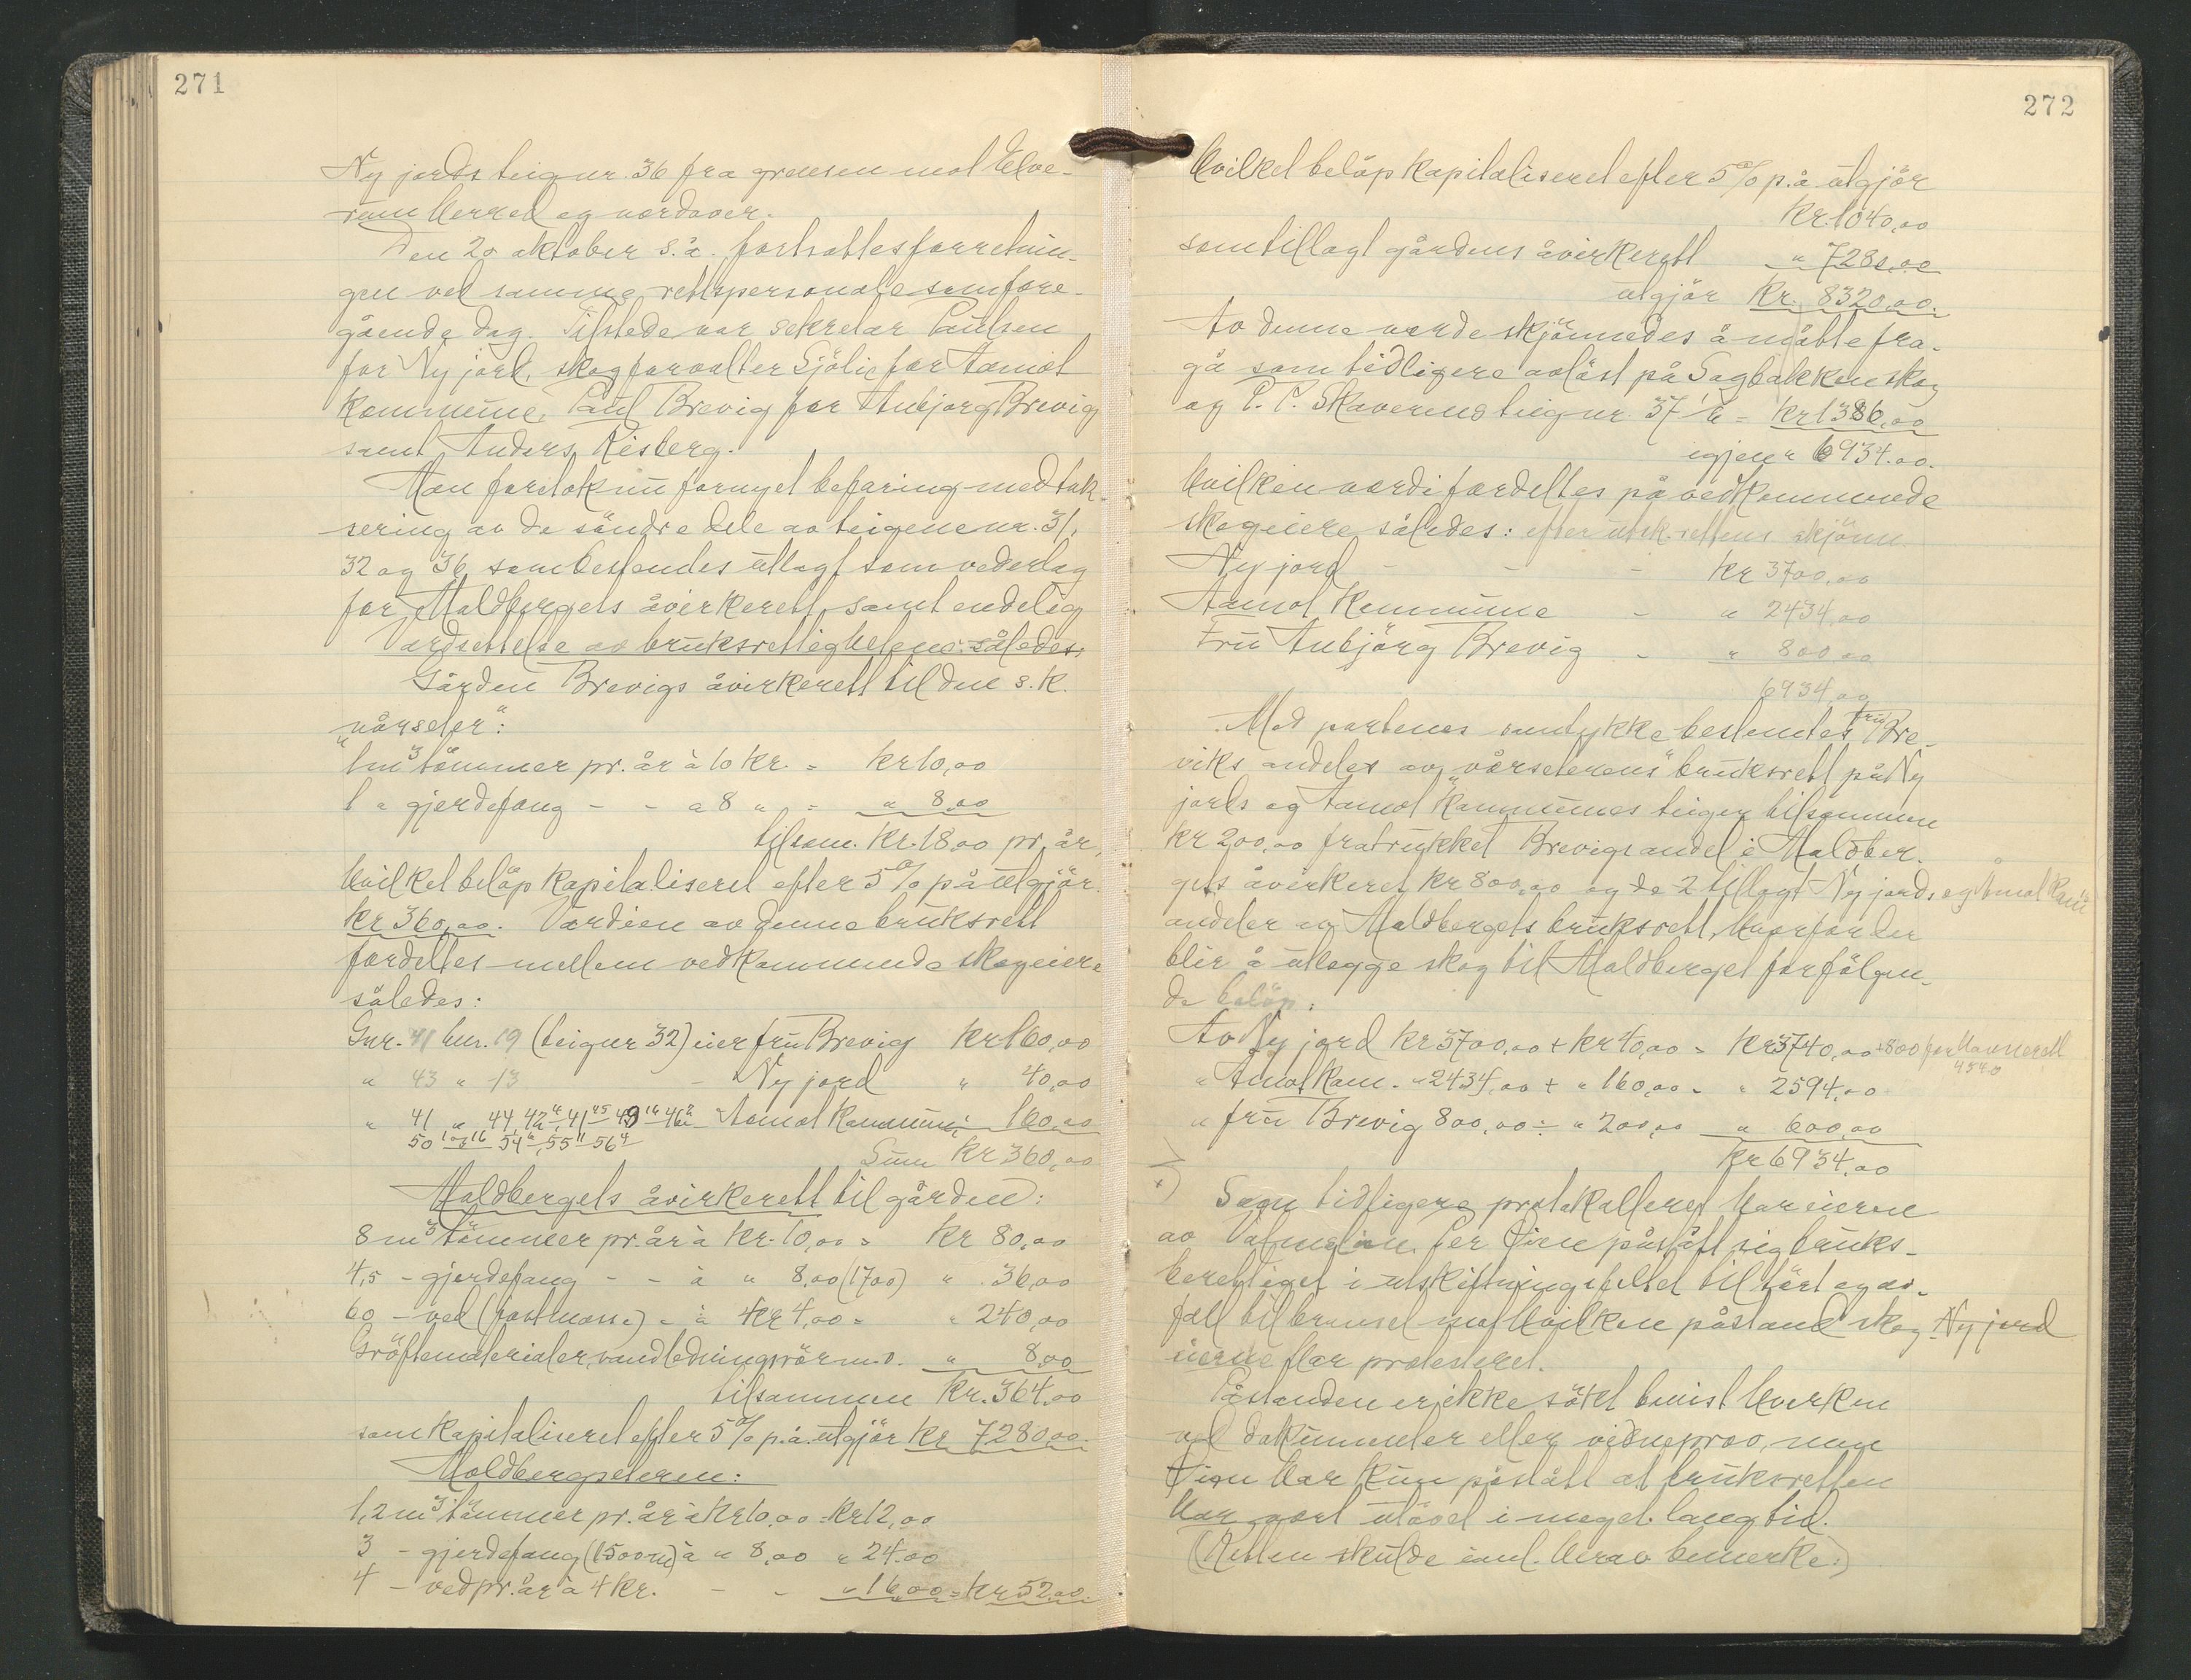 271
Ny jords teig nr. 36 fra grensen mot Elve-
rum herred og nordover.
Den 20 oktober s.å. fortsattes forretnin-
gen ved samme rettspersonale som fore-
gående dag. Tilstede var sekretær Paulsen
for Ny jord, skogforvalter Sjölie for Aamot
kommune, Paul Brevig for Anbjørg Brevig
samt Anders Risberg.
Man foretok nu fornyet befaring med tak-
sering av de söndre dele av teigene nr. 31,
32 og 36 som bestemtes utlagt som vederlag
for Maldbergets åvirkerett, samt endelig
Værdsettelse av bruksrettighetene således:
Gården Brevigs åvirkerett til den s.k.
"vårseter":
1m³ tömmer pr. år à 10 kr. = kr 10,00
1 " gjerdefang - - a 8 " = " 8,00
tilsam. kr. 18,00 pr. år,
hvilket belöp kapitaliseret efter 5% på utgjör
kr 360,00. Værdien av denne bruksrett
fordeltes mellem vedkommende skogeiere
således:
Gnr. 41 bnr. 19 (teig nr 32) eier fru Brevig kr 160,00
" 43 " 13 - Ny jord " 40,00
" 41 " 44, 42 41 45 49 16 46 Aamot Kommune: 160,00
50 1 og 16 54 6, 55 11 56 4
Sum kr 360,00
Maldbergets åvirkerett til gården:
8 m³ tömmer pr. år à kr. 10,00 = kr 80,00
4,5 - gjerdefang - - à " 8,00 (1700) " 36,00
60 - ved (fastmasse) - à kr 4,00 = " 240,00
Gröftematerialer, vandledningsrör m.v. " 8,00
tilsammen kr. 364,00
som kapitaliseret efter 5% p.å. utgjör kr 7280,00.
Maldbergseteren:
1,2 m³ tömmer pr. år à kr 10,00 = kr 12,00
3 - gjerdefang (1500 m) à " 8,00 " 24.00
4 - ved pr. år à 4 kr. - - " 16,00 = kr 52,00.
272
Hvilket belöp kapitaliseret efter 5% p.å. utgjör
kr. 1040,00
som tillagt gårdens åvirkerett " 7280,00
utgjör kr. 8320,00.
Av denne verdi skjönnedes å måtte fra-
gå som tidligere avlöst på Sagbakken skog
og P. P. Skaverens teig nr. 37 = kr 1386,00
igjen " 6934.00.
Hvilken værdi fordeltes på vedkommende
skogeiere således: efter utsk.rettens skjönn
Ny jord - - - kr 3700,00
Aamot Kommune - " 2434,00
Fru Anbjörg Brevig - " 800,00
6934,00
Med partenes samtykke bestemtes fru Bre-
viks andeler av "vårseterens" bruksrett på Ny
jords og Aamot Kommunes teiger tilsammen
kr 200,00 fratrukket Brevigs andel i Maldber-
gets åvirkeret kr 800,00 og de 2 tillagt Ny jords og Amot Kom
andeler av Maldbergets bruksrett, hvorfor der
blir å utlegge skog til Maldberget for fölgen-
de belöp:
Av Ny jord kr 3700,00 + kr 40,00 = kr 3740,00 + 800 for havnerett
4540
" Amot Kom. " 2434,00 + " 160,00 = " 2594,00
" fru Brevig 800,00 ÷ " 200,00 " 600,00
kr 6934,00
+) Som tidligere protokolleret har eieren
av Per Öien påstått sig bruks-
berettiget i utskiftningsfeltet til tört og av-
fall til brensel mot hvilken påstand skog Ny jord
eierne har protesteret.
Påstanden er ikke sökt bevist hverken
ved dokumenter eller vidneprov, men
Öien har kun påstått at bruksretten
har vært utövet i meget lang tid.
(Retten skulde inl. herav bemerke:)